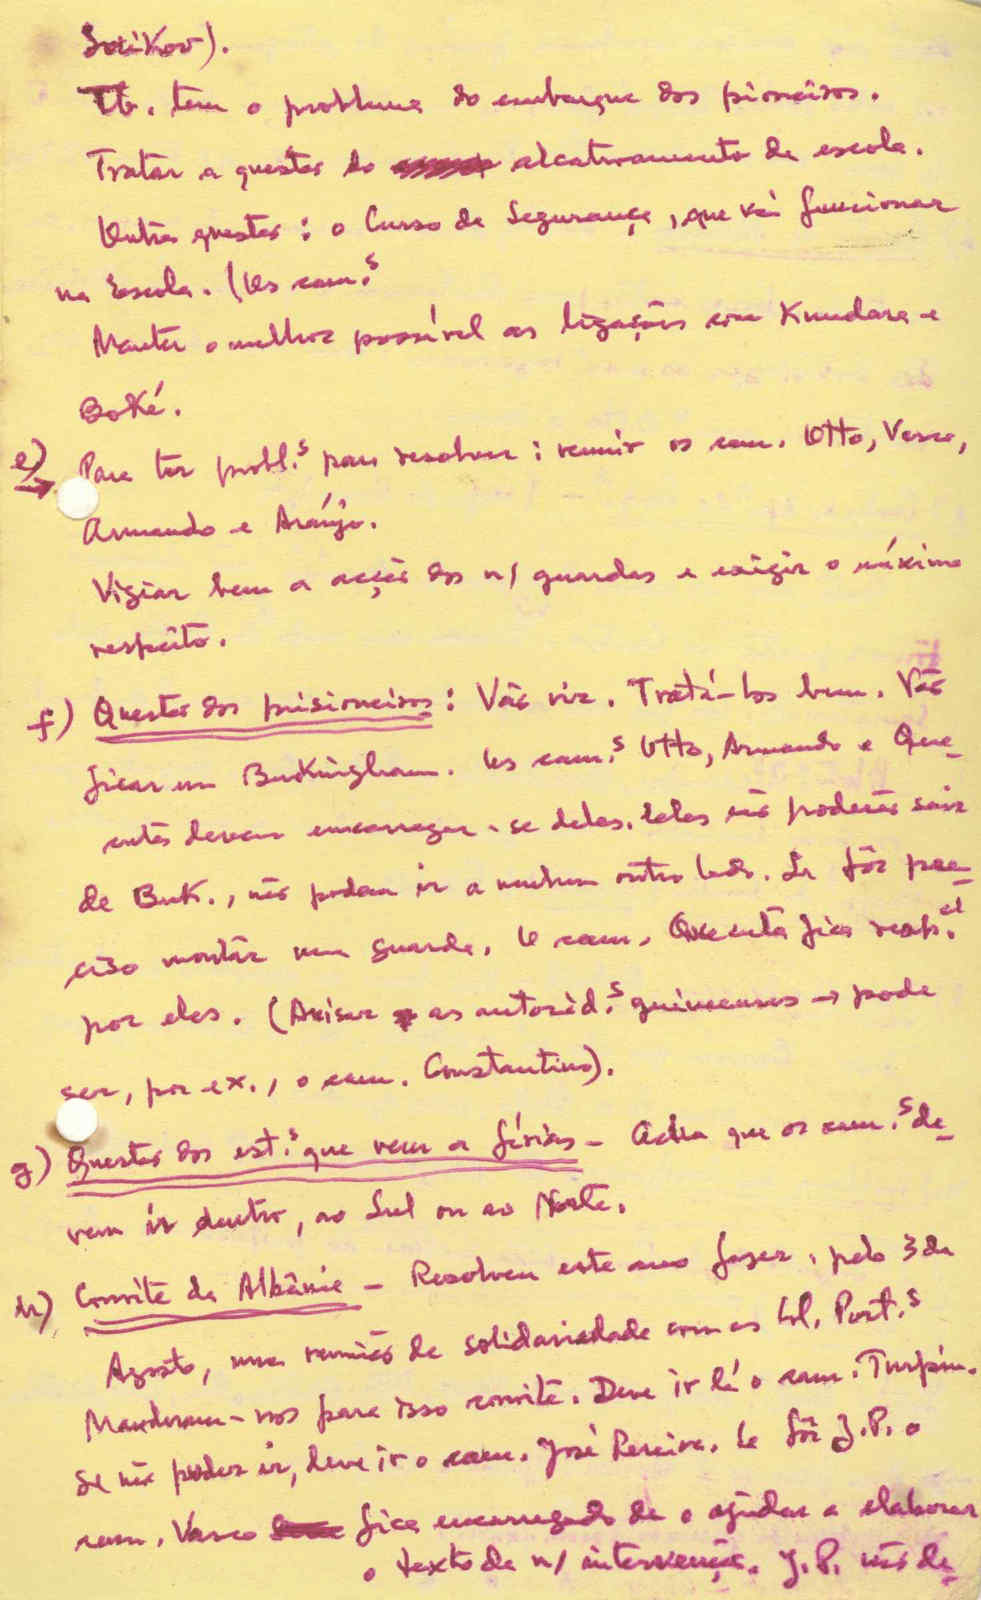 Tb. tem o problema do embarque dos pioneiros.
Tratar a questão do alcatroamento da escola.
Outra questão: o Curso de Segurança, que vai funcionar
na Escola. (Os cam.s
Manter o melhor possível as ligações com Kundara e
Boké.
e) Para ter probl.s para resolver: reunir os cam. Otto, Vasco,
→ Armando e Araújo.
Vigiar bem a acção dos n/ guardas e exigir o máximo
respeito.
f) Questão dos prisioneiros: Vão vir. Tratá-los bem. Vão
ficar em Buckingham. Os cam.s Otto, Armando e Que-
entá devem encarregar-se deles. Eles não poderão sair
de Buk., não podem ir a nenhum outro lado. Se fôr pre-
ciso montar uma guarda. O cam. Queentá fica resp.el
por eles. (Avisar as autorid.s guineenses → pode
ser, por ex., o cam. Constantino).
g) Questão dos est.s que vem a férias - Acha que os cam.s de-
vem ir dentro, ao Sul ou ao Norte.
h) Convite da Albânia - Resolveu este ano fazer, pelo 3 de
Agosto, uma reunião de solidariedade com as Col. Port.s
Mandaram-nos para isso convite. Deve ir lá o cam. Turpin.
Se não puder ir, deve ir o cam. José Pereira. Se fôr J.P. o
cam. Vasco fica encarregado de o ajudar a elaborar
o texto da n/ intervenção. J.P. não de-